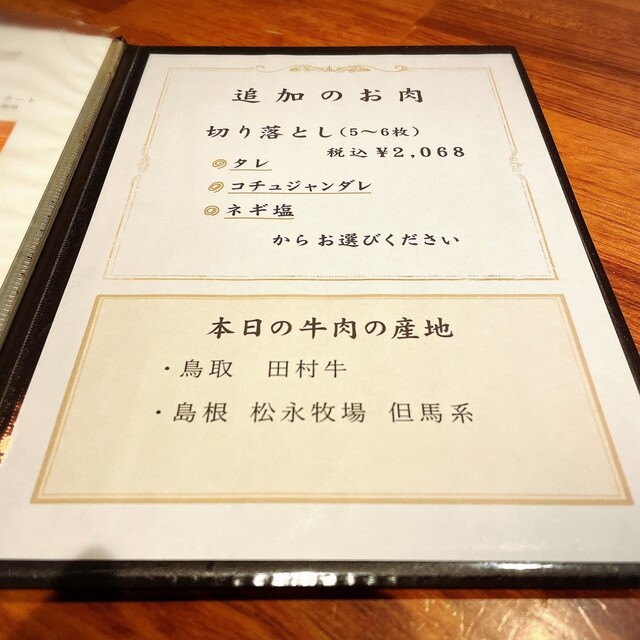 追加のお肉
切り落とし(5～6枚)
税込 ¥2,068
タレ
コチュジャンダレ
ネギ塩
からお選びください
本日の牛肉の産地
・鳥取 田村牛
・島根 松永牧場 但馬系